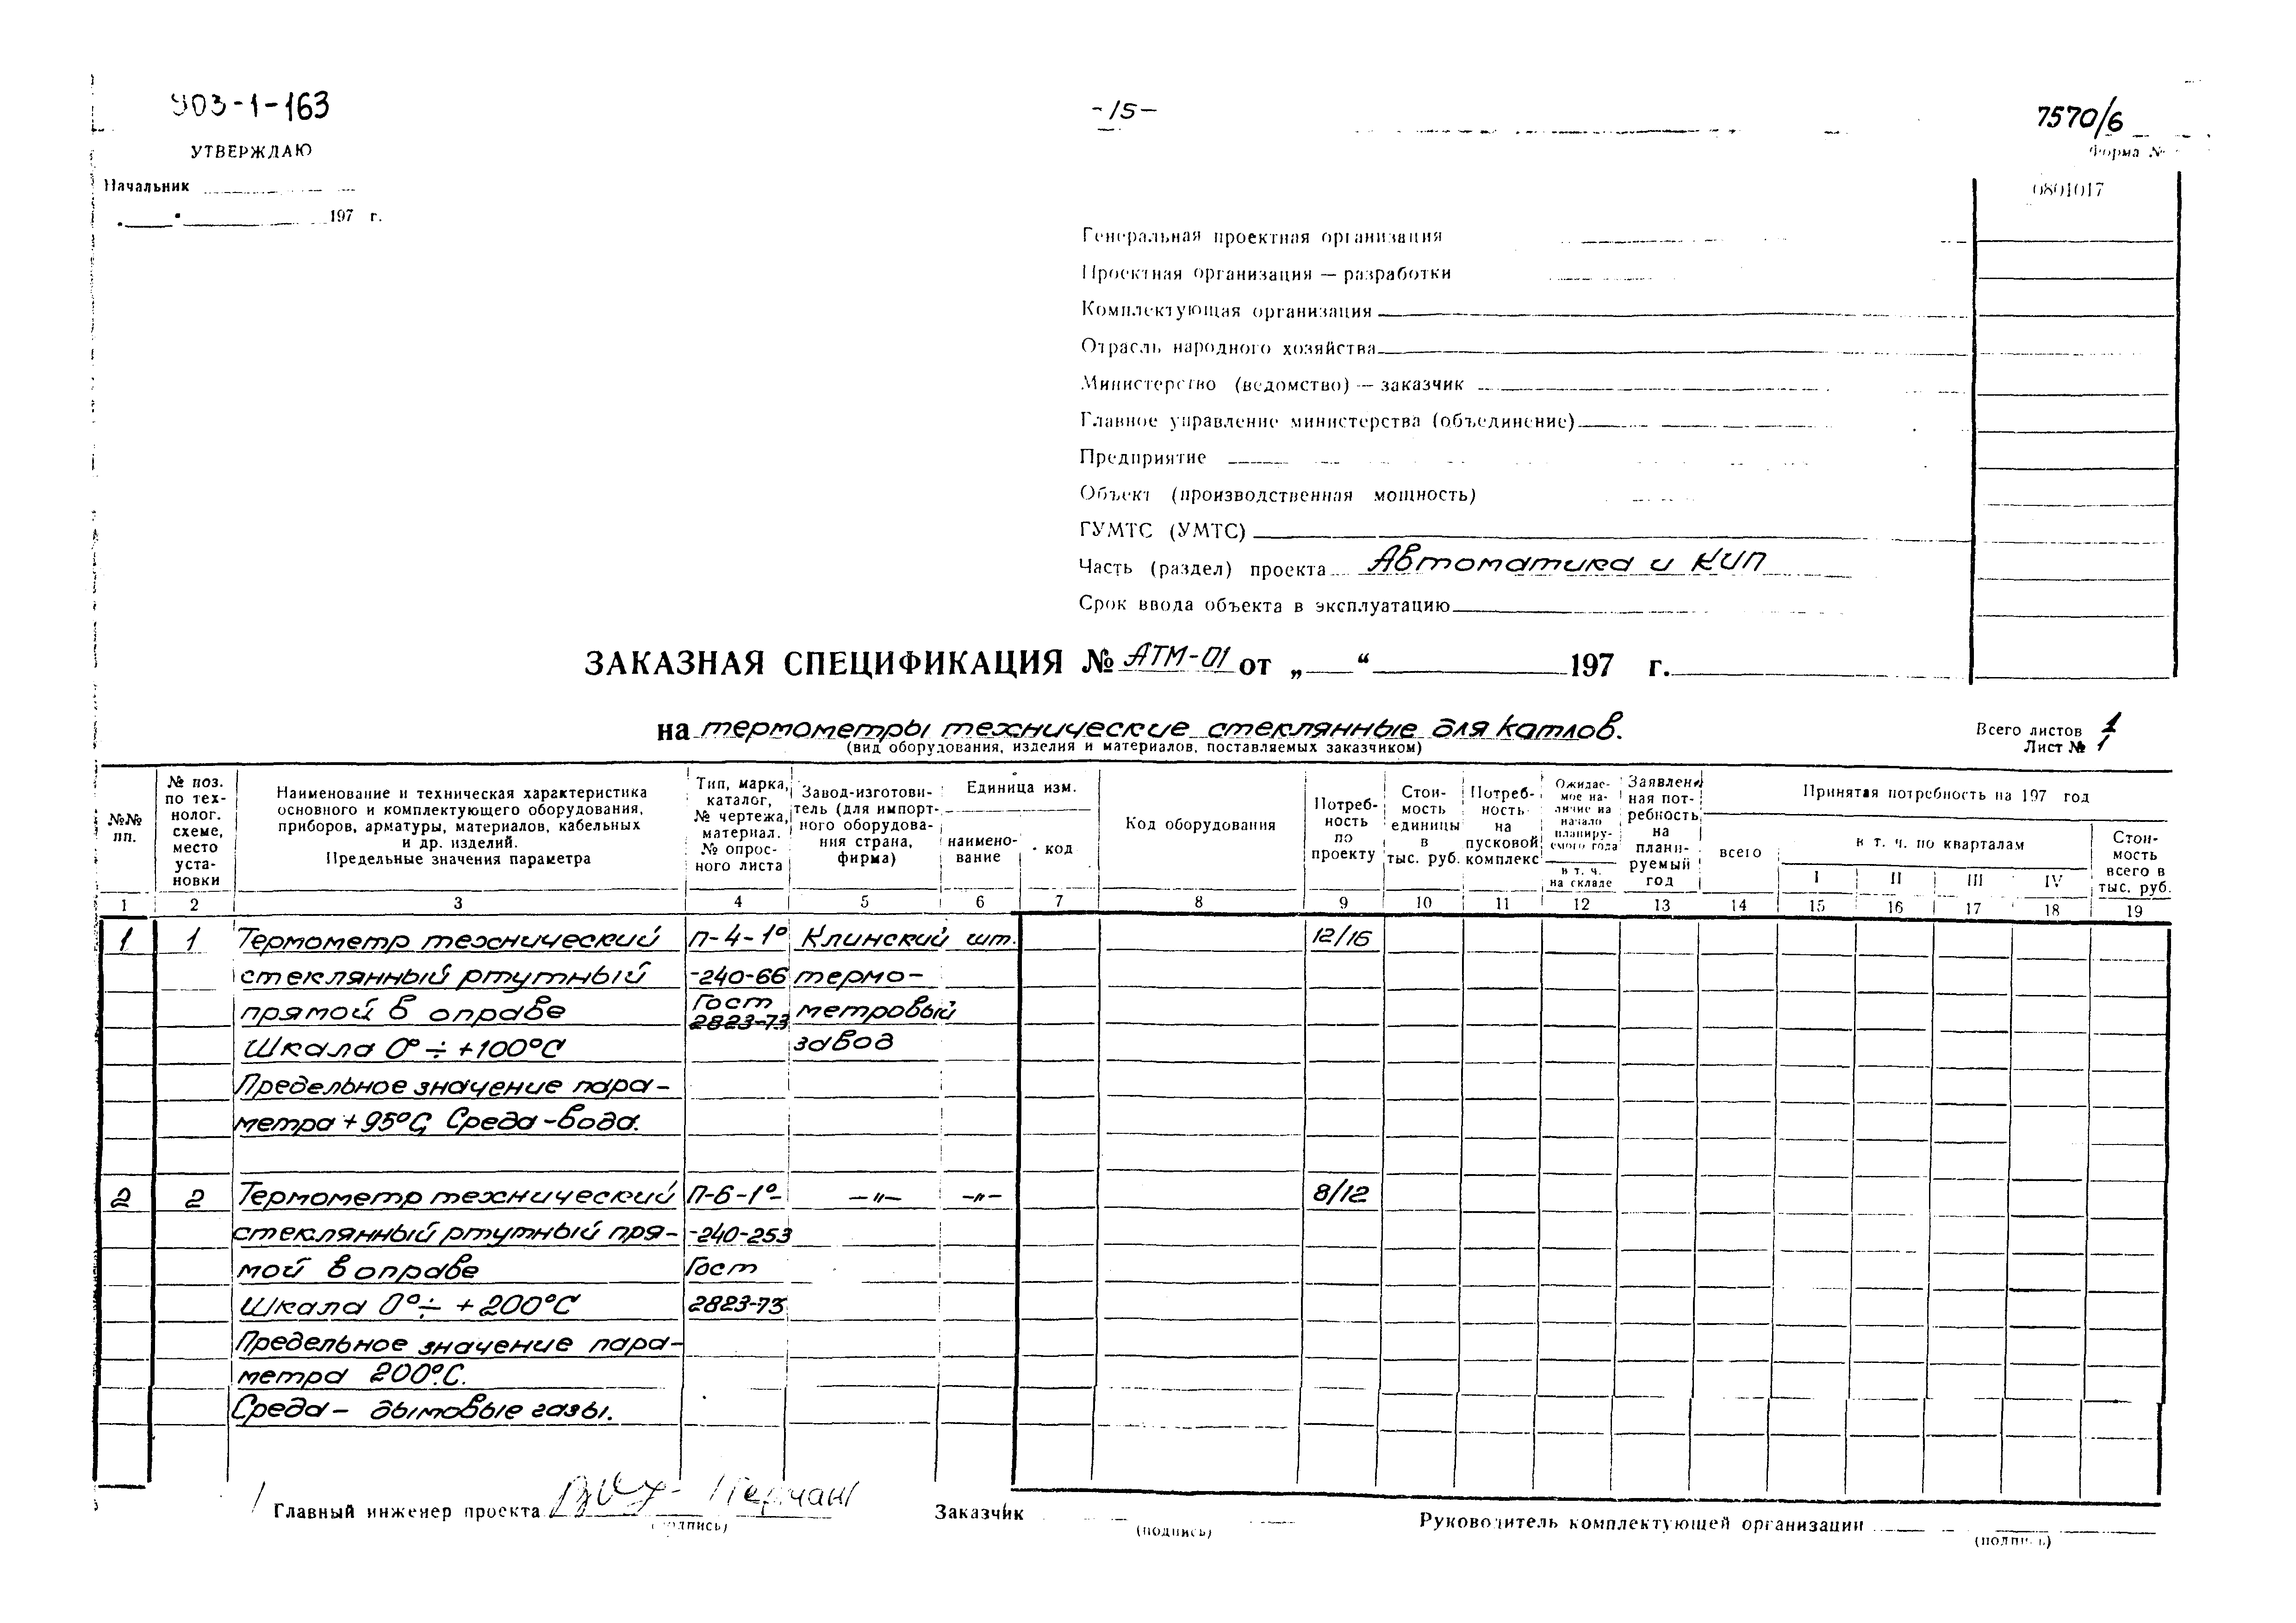 903-1-163
-15-
7570/6
УТВЕРЖДАЮ
Форма №
Начальник
0801017
197 г.
Генеральная проектная организация
Проектная организация — разработки
Комплектующая организация
Отрасль народного хозяйства
Министерство (ведомство) — заказчик
Главное управление министерства (объединение)
Предприятие
Объект (производственная мощность)
ГУМТС (УМТС)
Часть (раздел) проекта Автоматика и КИП
Срок ввода объекта в эксплуатацию
ЗАКАЗНАЯ СПЕЦИФИКАЦИЯ № АТМ-01 от „ “ 197 г.
на термометры технические стеклянные для катлов.
(вид оборудования, изделия и материалов, поставляемых заказчиком)
Всего листов 1
Лист № 1
№№ пп.
№ поз. по тех- нолог. схеме, место уста- новки
Наименование и техническая характеристика
основного и комплектующего оборудования,
приборов, арматуры, материалов, кабельных
и др. изделий.
Предельные значения параметра
Тип, марка, каталог, № чертежа, материал. № опрос- ного листа
Завод-изготови- тель (для импорт- ного оборудова- ния страна, фирма)
Единица изм.
наимено- вание
код
Код оборудования
Потреб- ность по проекту
Стои- мость единицы в тыс. руб.
Потреб- ность на пусковой комплекс
Ожидае- мое на- личие на начало планиру- емого года
в т. ч. на складе
Заявлен ная пот- ребность на плани- руемый год
Принятая потребность на 197 год
всего
в т. ч. по кварталам
I II III IV
Стои- мость всего в тыс. руб.
1 2 3 4 5 6 7 8 9 10 11 12 13 14 15 16 17 18 19
1 1 Термометр технический П-4-1° Клинский шт. 12/16
стеклянный ртутный -240-66 термо-
прямой в оправе Гост 2823-73 метровый
Шкала 0° ÷ +100°С завод
Предельное значение пара-
метра +95°С, Среда-вода.
2 2 Термометр технический П-6-1°- —"— -"- 8/12
стеклянный ртутный пря- -240-253
мой в оправе Гост
Шкала 0° ÷ +200°С 2823-73
Предельное значение пара-
метра 200°С.
Среда- дымовые газы.
Главный инженер проекта
(подпись)
Заказчик
(подпись)
Руководитель комплектующей организации
(подпись)